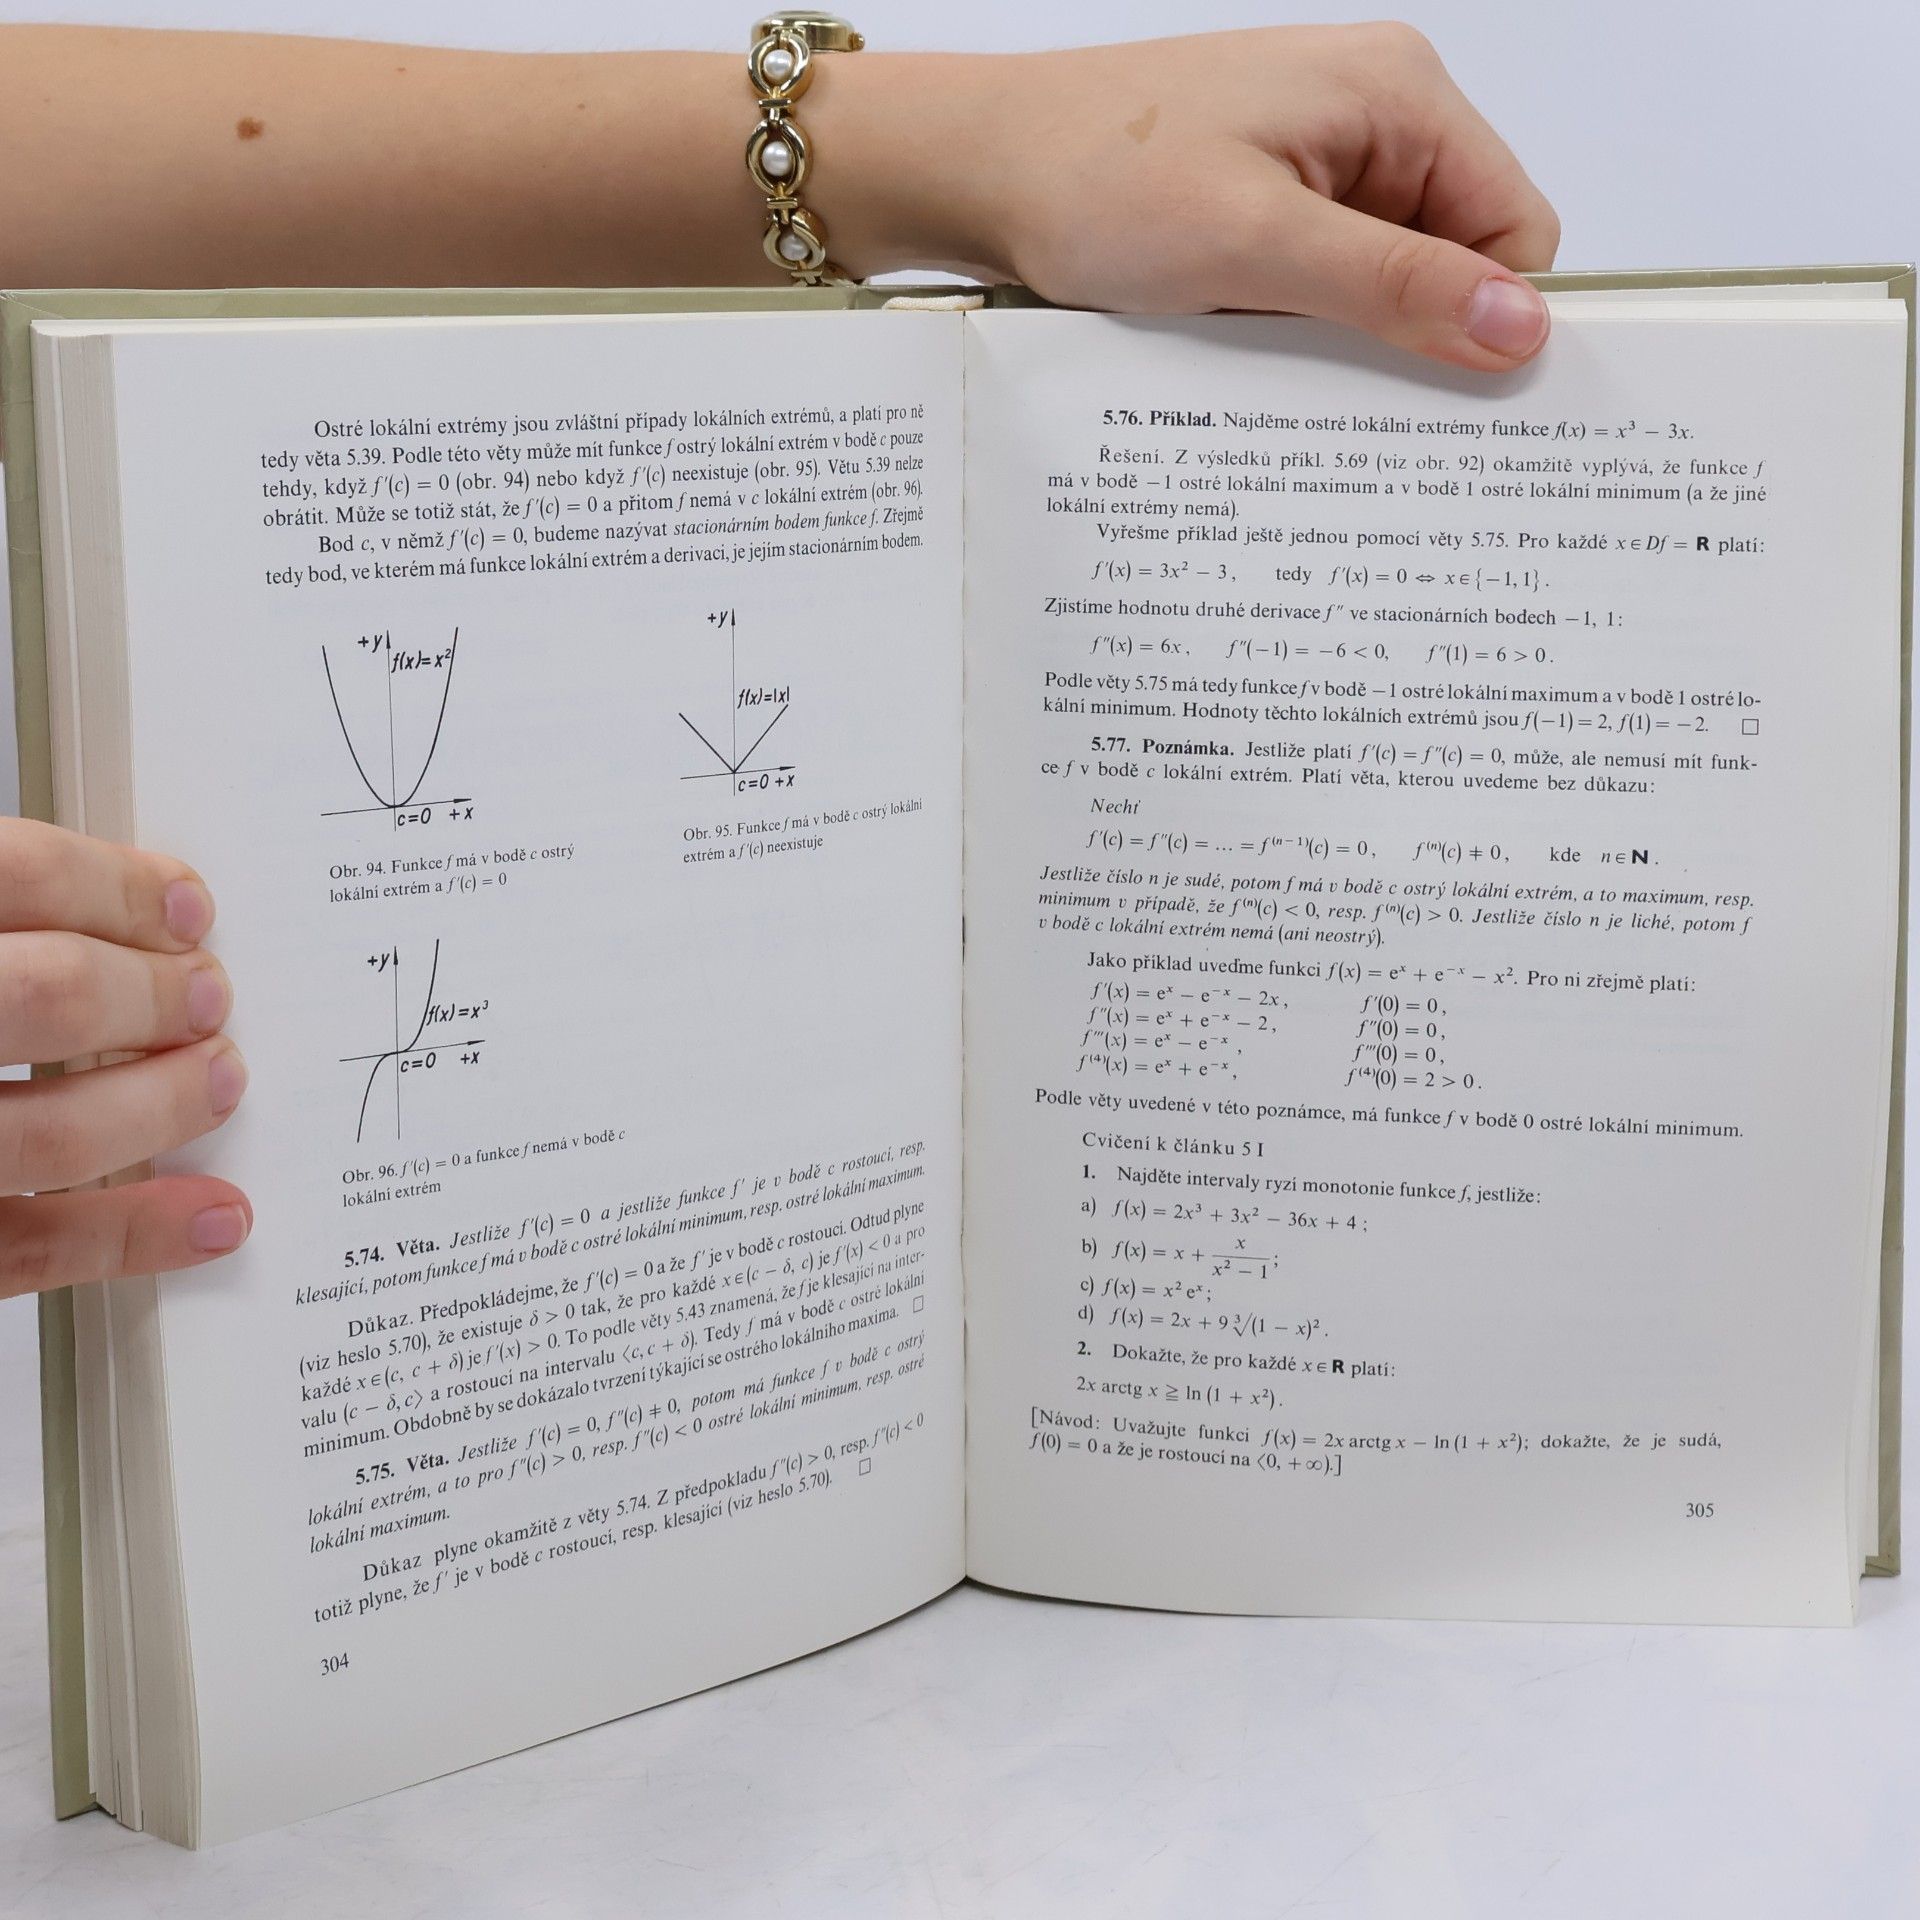 Ostré lokální extrémy jsou zvláštní případy lokálních extrémů, a platí pro ně
tedy věta 5.39. Podle této věty může mít funkce f ostrý lokální extrém v bodě c pouze
tehdy, když f′(c) = 0 (obr. 94) nebo když f′(c) neexistuje (obr. 95). Větu 5.39 nelze
obrátit. Může se totiž stát, že f′(c) = 0 a přitom f nemá v c lokální extrém (obr. 96).
Bod c, v němž f′(c) = 0, budeme nazývat stacionárním bodem funkce f. Zřejmě
tedy bod, ve kterém má funkce lokální extrém a derivaci, je jejím stacionárním bodem.
+y
f(x)=x²
c=0 +x
Obr. 94. Funkce f má v bodě c ostrý
lokální extrém a f′(c) = 0
+y
f(x)=|x|
c=0 +x
Obr. 95. Funkce f má v bodě c ostrý lokální
extrém a f′(c) neexistuje
+y
f(x)=x³
c=0 +x
Obr. 96. f′(c) = 0 a funkce f nemá v bodě c
lokální extrém
5.74. Věta. Jestliže f′(c) = 0 a jestliže funkce f′ je v bodě c rostoucí, resp.
klesající, potom funkce f má v bodě c ostré lokální minimum, resp. ostré lokální maximum.
Důkaz. Předpokládejme, že f′(c) = 0 a že f′ je v bodě c rostoucí. Odtud plyne
(viz heslo 5.70), že existuje δ > 0 tak, že pro každé x ∈ (c − δ, c) je f′(x) < 0 a pro
každé x ∈ (c, c + δ) je f′(x) > 0. To podle věty 5.43 znamená, že f je klesající na inter-
valu (c − δ, c⟩ a rostoucí na intervalu ⟨c, c + δ). Tedy f má v bodě c ostré lokální
minimum. Obdobně by se dokázalo tvrzení týkající se ostrého lokálního maxima. □
5.75. Věta. Jestliže f′(c) = 0, f″(c) ≠ 0, potom má funkce f v bodě c ostrý
lokální extrém, a to pro f″(c) > 0, resp. f″(c) < 0 ostré lokální minimum, resp. ostré
lokální maximum.
Důkaz plyne okamžitě z věty 5.74. Z předpokladu f″(c) > 0, resp. f″(c) < 0
totiž plyne, že f′ je v bodě c rostoucí, resp. klesající (viz heslo 5.70). □
304
5.76. Příklad. Najděme ostré lokální extrémy funkce f(x) = x³ − 3x.
Řešení. Z výsledků příkl. 5.69 (viz obr. 92) okamžitě vyplývá, že funkce f
má v bodě −1 ostré lokální maximum a v bodě 1 ostré lokální minimum (a že jiné
lokální extrémy nemá).
Vyřešme příklad ještě jednou pomocí věty 5.75. Pro každé x ∈ Df = R platí:
f′(x) = 3x² − 3, tedy f′(x) = 0 ⇔ x ∈ {−1, 1}.
Zjistíme hodnotu druhé derivace f″ ve stacionárních bodech −1, 1:
f″(x) = 6x, f″(−1) = −6 < 0, f″(1) = 6 > 0.
Podle věty 5.75 má tedy funkce f v bodě −1 ostré lokální maximum a v bodě 1 ostré lo-
kální minimum. Hodnoty těchto lokálních extrémů jsou f(−1) = 2, f(1) = −2. □
5.77. Poznámka. Jestliže platí f′(c) = f″(c) = 0, může, ale nemusí mít funk-
ce f v bodě c lokální extrém. Platí věta, kterou uvedeme bez důkazu:
Nechť
f′(c) = f″(c) = ... = f⁽ⁿ⁻¹⁾(c) = 0, f⁽ⁿ⁾(c) ≠ 0, kde n ∈ N.
Jestliže číslo n je sudé, potom f má v bodě c ostrý lokální extrém, a to maximum, resp.
minimum v případě, že f⁽ⁿ⁾(c) < 0, resp. f⁽ⁿ⁾(c) > 0. Jestliže číslo n je liché, potom f
v bodě c lokální extrém nemá (ani neostrý).
Jako příklad uveďme funkci f(x) = eˣ + e⁻ˣ − x². Pro ni zřejmě platí:
f′(x) = eˣ − e⁻ˣ − 2x, f′(0) = 0,
f″(x) = eˣ + e⁻ˣ − 2, f″(0) = 0,
f‴(x) = eˣ − e⁻ˣ, f‴(0) = 0,
f⁽⁴⁾(x) = eˣ + e⁻ˣ, f⁽⁴⁾(0) = 2 > 0.
Podle věty uvedené v této poznámce, má funkce f v bodě 0 ostré lokální minimum.
Cvičení k článku 5 I
1. Najděte intervaly ryzí monotonie funkce f, jestliže:
a) f(x) = 2x³ + 3x² − 36x + 4;
b) f(x) = x + x/(x² − 1);
c) f(x) = x² eˣ;
d) f(x) = 2x + 9 ∛(1 − x)².
2. Dokažte, že pro každé x ∈ R platí:
2x arctg x ≧ ln (1 + x²).
[Návod: Uvažujte funkci f(x) = 2x arctg x − ln (1 + x²); dokažte, že je sudá,
f(0) = 0 a že je rostoucí na ⟨0, +∞).]
305